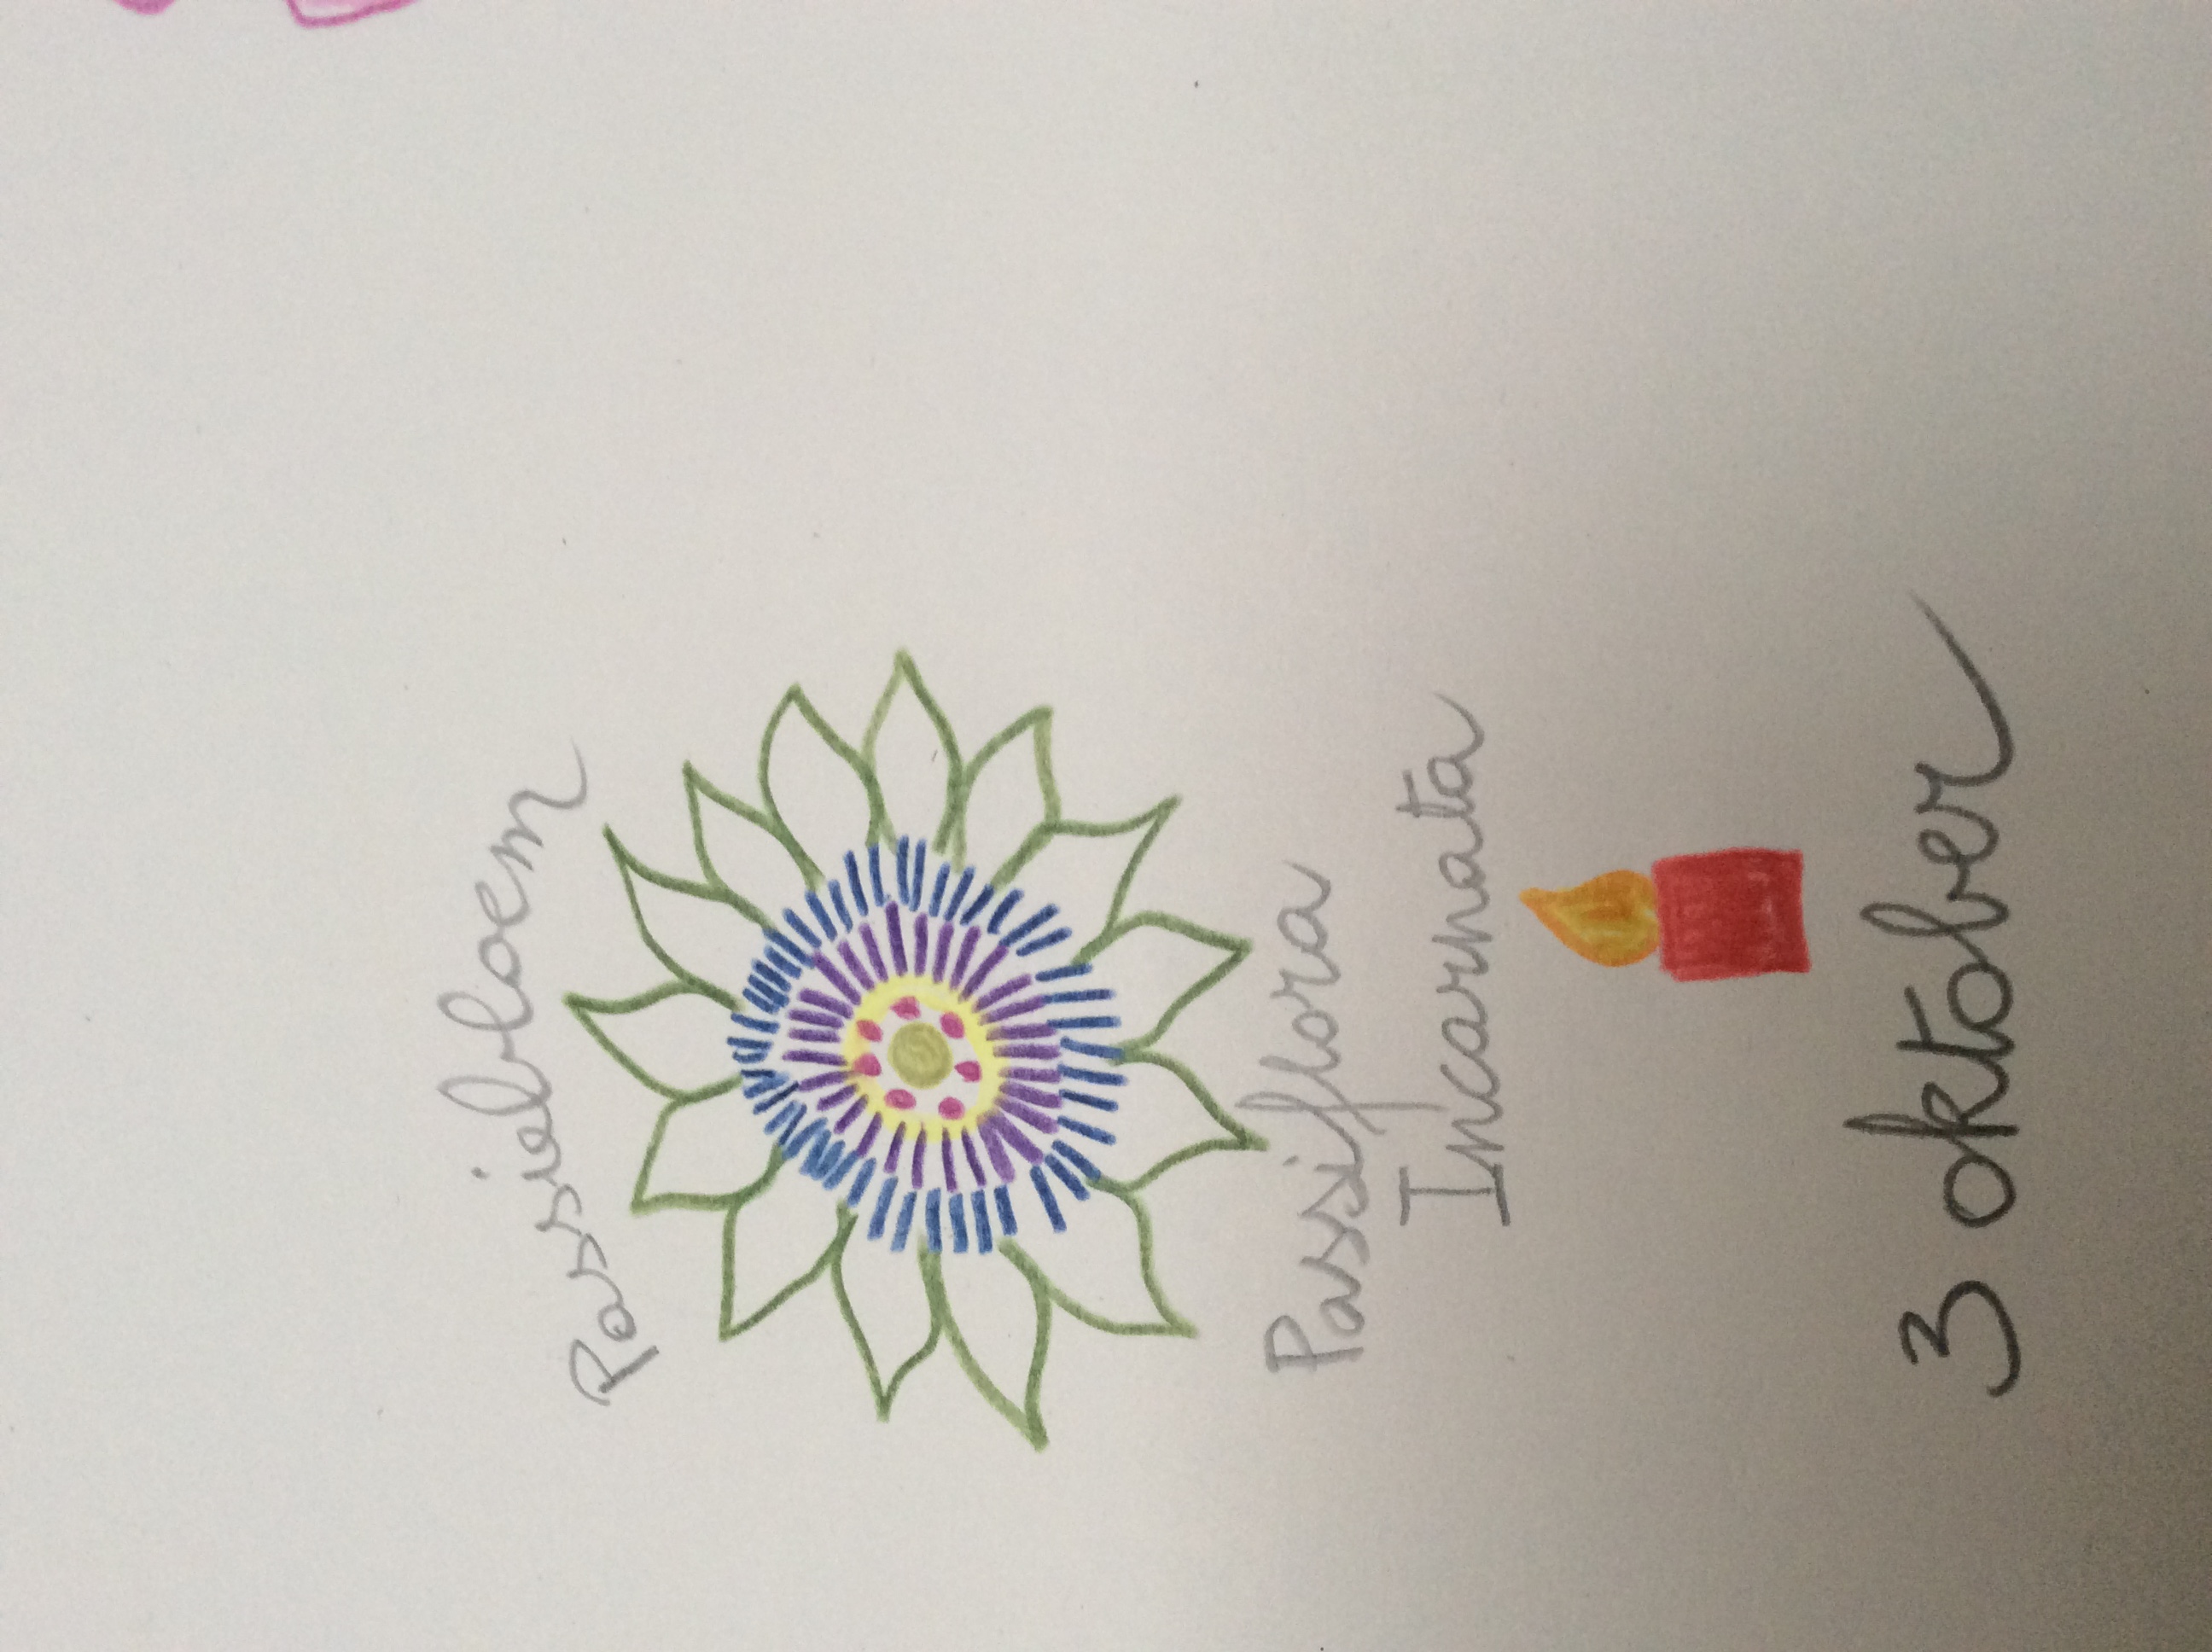 Passiebloem
Passiflora
Incarnata
3 oktober